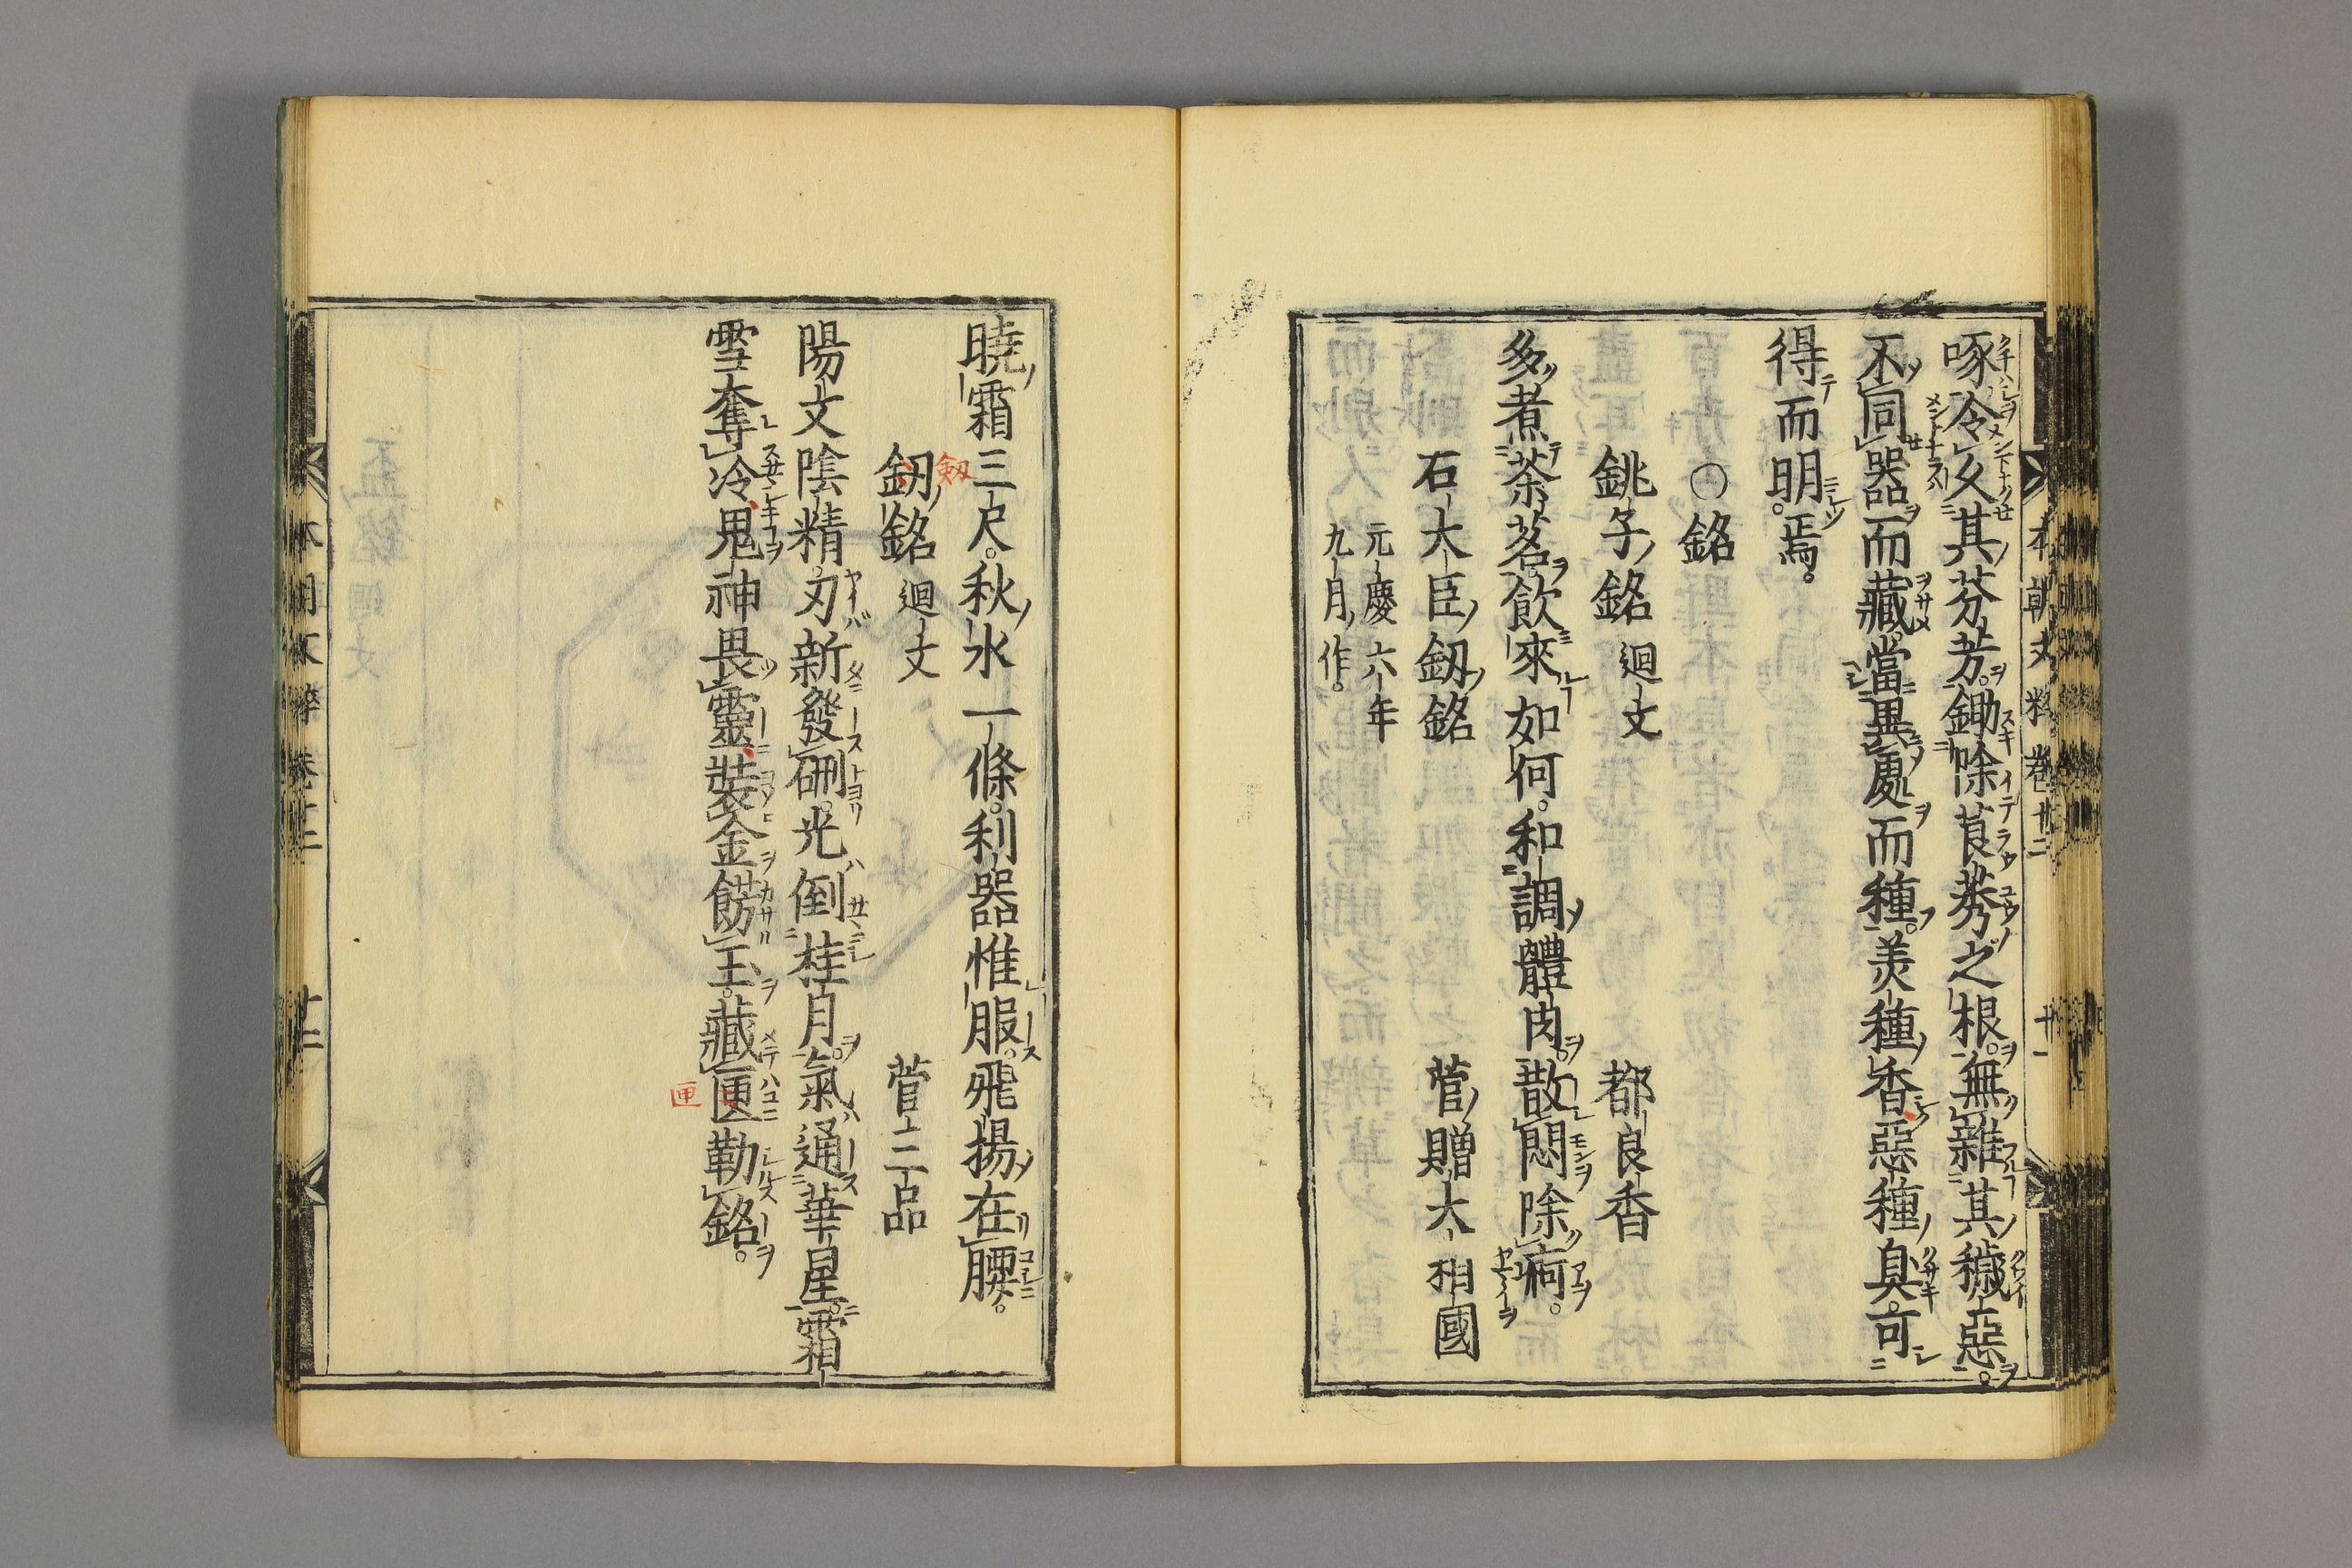 本朝文粹卷十二
十一
啄令攵其芬芳鋤除莨莠之根無雜其穢惡
不同器而藏當異處而種羙種香惡種臭可
得而明焉
○銘
銚子銘 廻文 都良香
多煮茶茗飲來如何和調體肉散悶除痾
石大臣釼銘 菅贈大相國
元慶六年
九月作
曉霜三尺秋水一條利器惟服飛揚在腰
釼銘 廻文 菅三品
劔
陽文陰精刃新發硎光倒桂月氣通華星霜
雪奪冷鬼神畏靈裝金餝玉藏匣勒銘
匣
十二